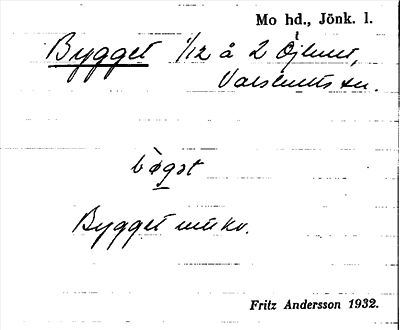 Mo hd., Jönk. l.
Bygget 1/12 å 2 Öjhult,
Valshults sn.
bø̀gət
Bygget mtkv.
Fritz Andersson 1932.